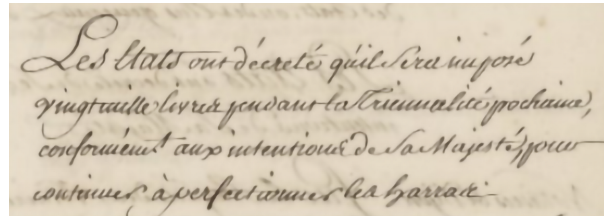 Les Etats ont décreté qu'il sera imposé
vingt mille livres pendant la Triennalité pochaine,
conformém.t aux intentions de Sa Majesté, pour
continuer, à perfectionner les harras.